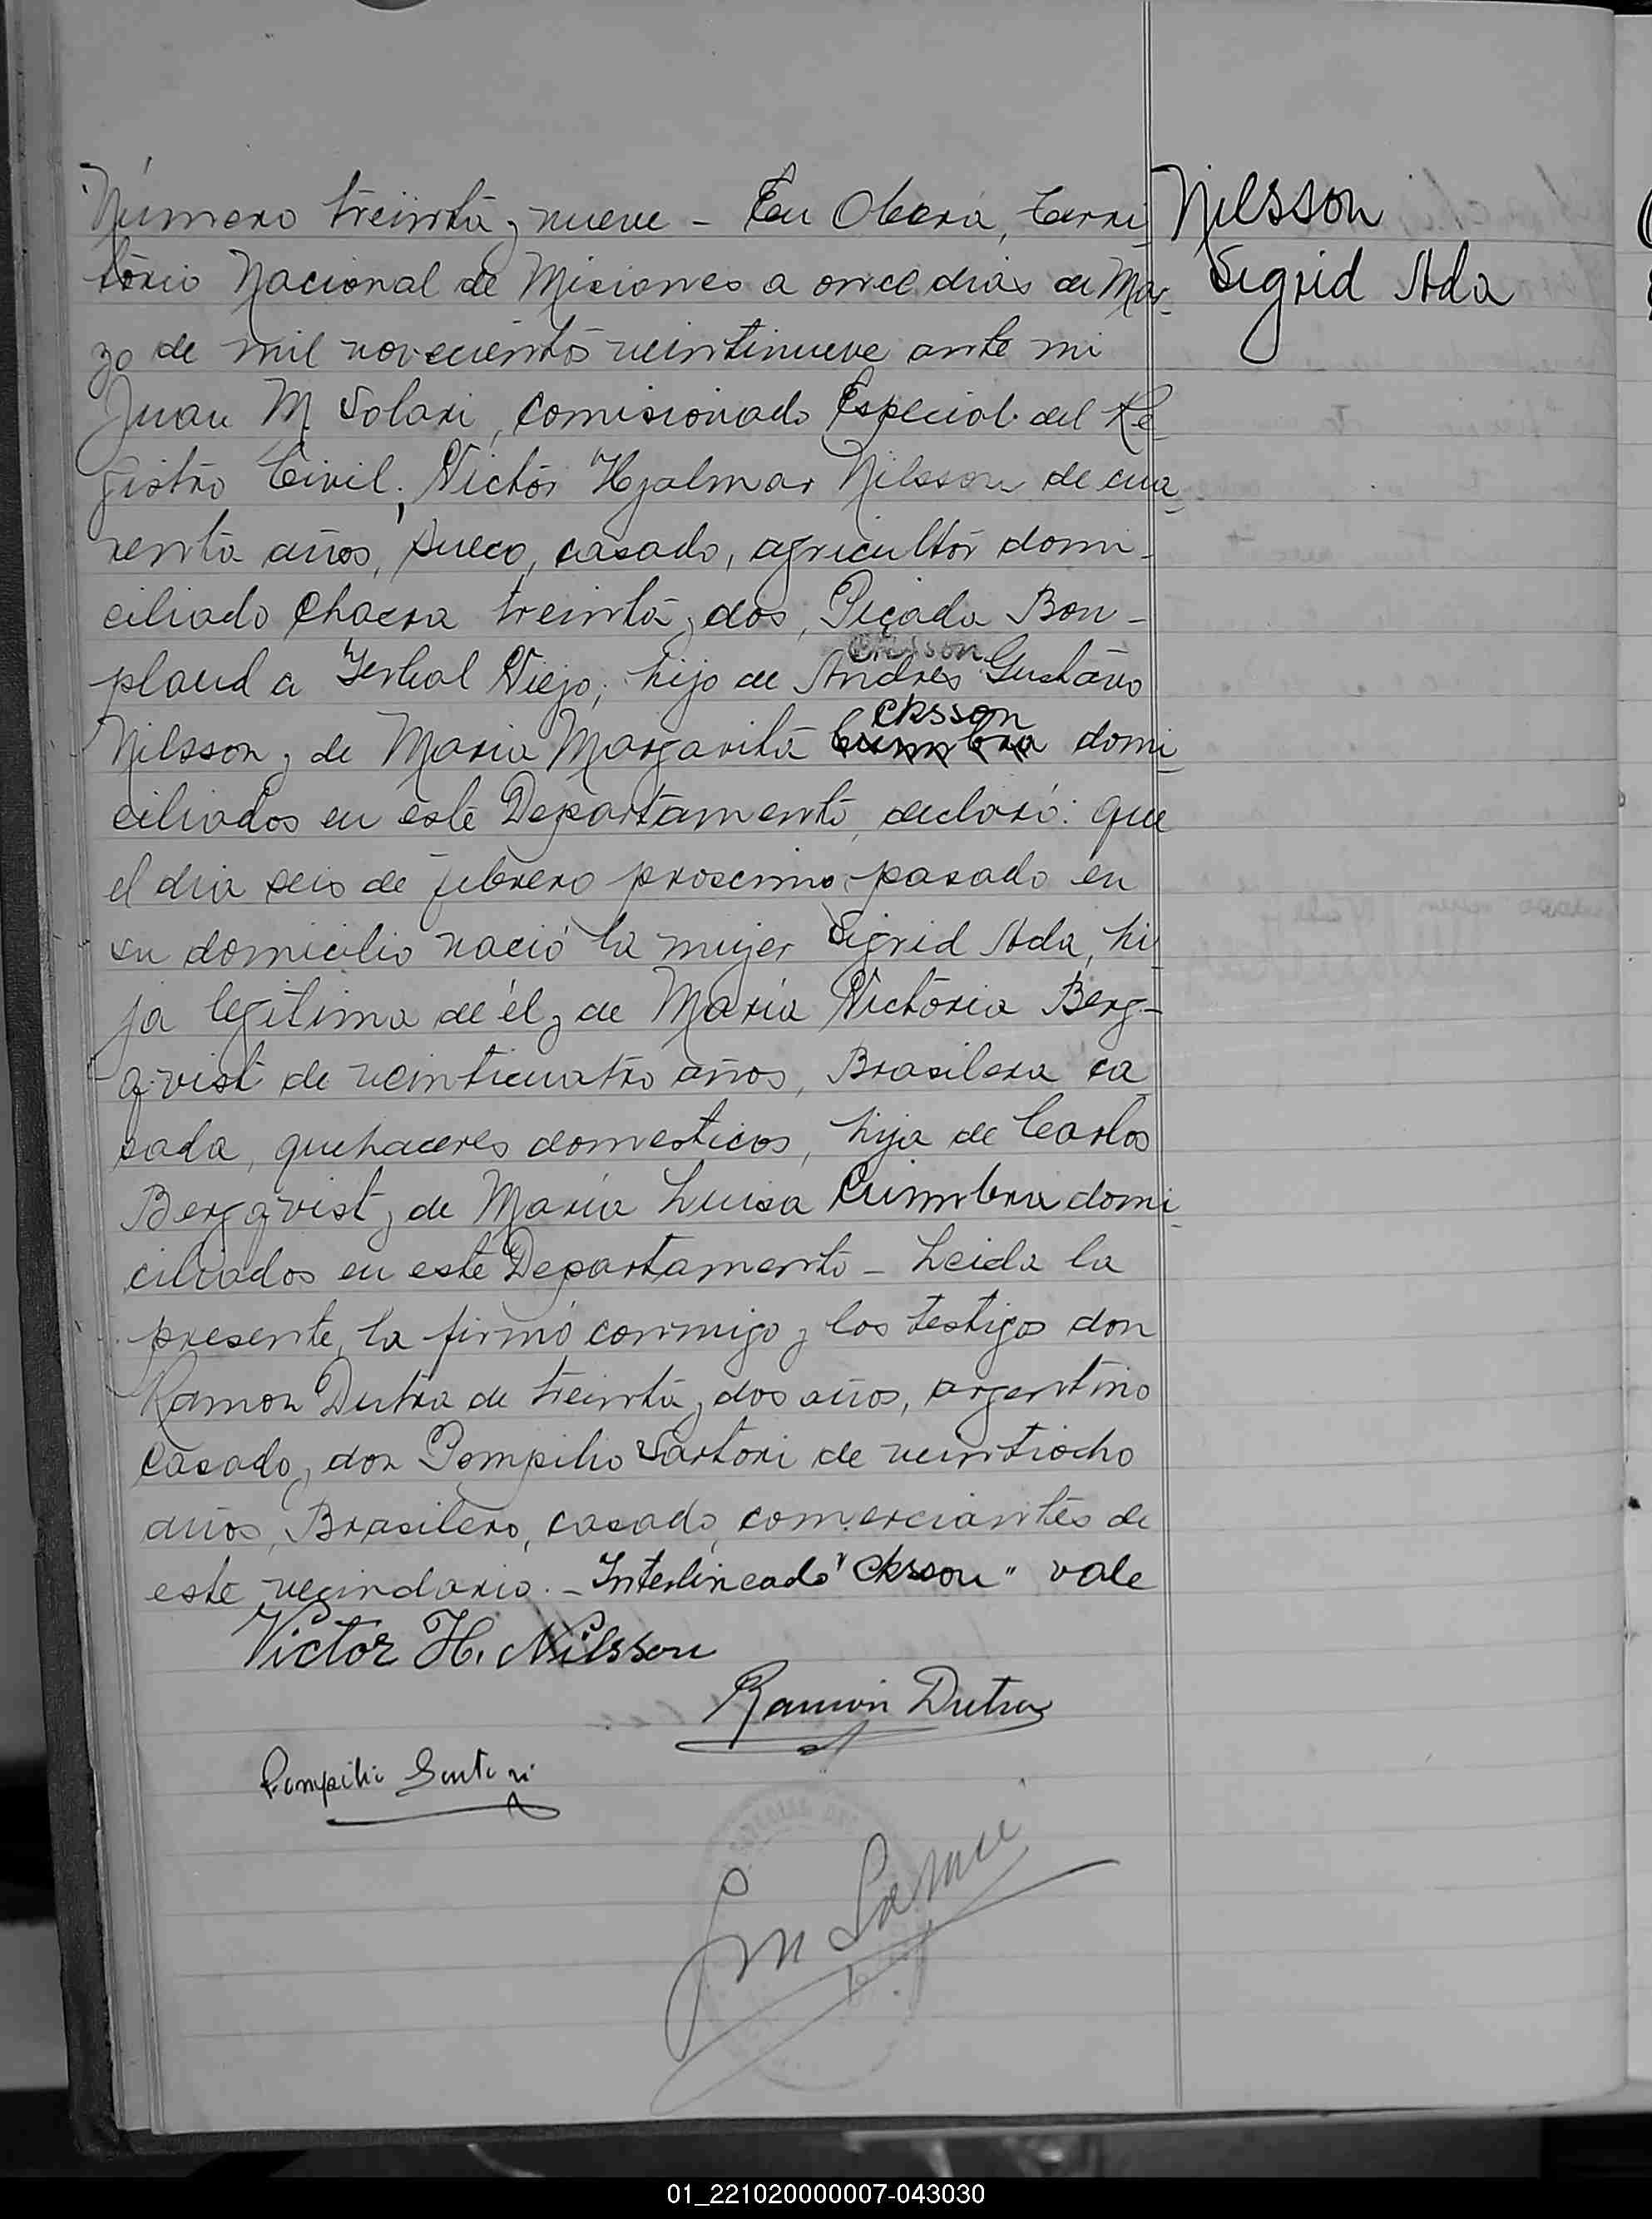 Número treinta y nueve - En Oberá, Terri
Nilsson
torio Nacional de Misiones a once dias de Mar-
Sigrid Ada
zo de mil novecientos veintinueve ante mi
Juan M Solari, Comisionado Especial del Re
gistro Civil; Victor Hjalmar Nilsson de cua
renta años, sueco, casado, agricultor domi-
ciliado Chacra treinta y dos, Picada Bon-
pland a Yerbal Viejo; hijo de Andres Gustavo
Nilsson y de Maria Margarita Cumbra domi
cksson
ciliados en este Departamento, declaró: que
el dia seis de febrero proscimo pasado en
su domicilio nació la mujer Sigrid Ada, hi
ja legitima de él y de Maria Victoria Berg-
qvist de veinticuatro años, Brasilera ca
sada, quehaceres domesticos, hija de Carlos
Bergqvist y de Maria Luisa Cumbra domi
ciliados en este Departamento - Leida la
presente, la firmó conmigo y los testigos don
Ramon Dutra de treinta y dos años, argentino
Casado y don Pompilio Sartori de veintiocho
años, Brasilero, casado, comerciantes de
este vecindario. - Interlineado "cksson" vale
Victor H. Nilsson
Ramón Dutra
Pompilio Sartori
01_221020000007-043030